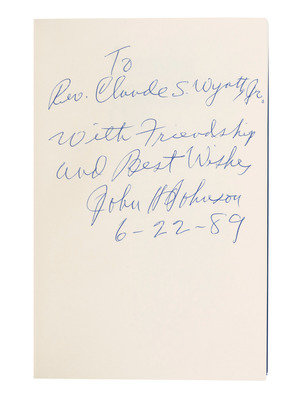 To
Rev. Claude S. Wyatt, Jr.
With Friendship
and Best Wishes
John H Johnson
6-22-89